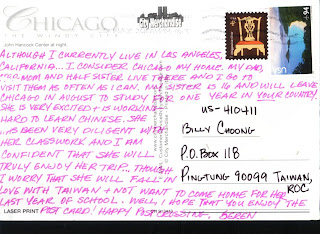 CHICAGO
THE WINDY CITY
City Merchandise
John Hancock Center at night.
ALTHOUGH I CURRENTLY LIVE IN LOS ANGELES,
CALIFORNIA... I CONSIDER CHICAGO MY HOME. MY DAD,
MOM AND HALF SISTER LIVE THERE AND I GO TO
VISIT THEM AS OFTEN AS I CAN. MY SISTER IS 16 AND WILL LEAVE
CHICAGO IN AUGUST TO STUDY FOR ONE YEAR IN YOUR COUNTRY.
SHE IS VERY EXCITED + IS WORKING
HARD TO LEARN CHINESE. SHE
HAS BEEN VERY DILIGENT WITH
HER CLASSWORK AND I AM
CONFIDENT THAT SHE WILL
TRULY ENJOY HER TRIP. THOUGH
I WORRY THAT SHE WILL FALL IN
LOVE WITH TAIWAN + NOT WANT TO COME HOME FOR HER
LAST YEAR OF SCHOOL. WELL, I HOPE THAT YOU ENJOY THE
POST CARD! HAPPY POSTCROSSING, BEREN
LASER PRINT
US-410411
BILLY CHOONG
P.O. BOX 118
PINGTUNG 90099 TAIWAN,
ROC